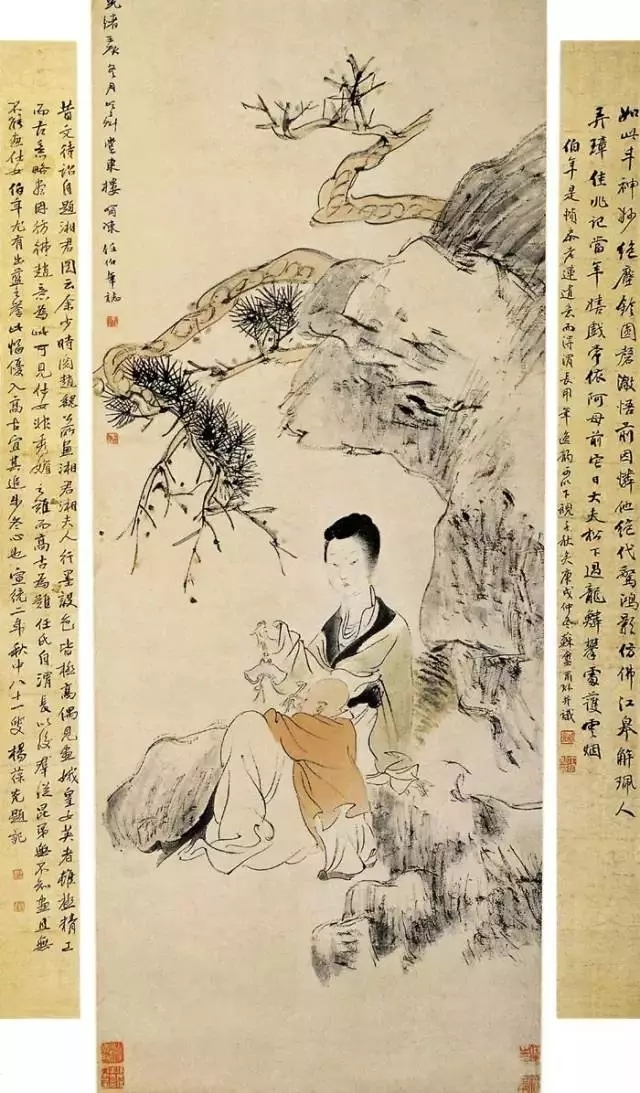 如此丰神妙絕塵鈴圓磬澈悟前因憐他絕代驚鴻影仿佛江皋解珮人
弄璋佳兆記當年嬉戲常依阿母前它日大夫松下過龍鱗攀處護雲烟
伯年是幀參老蓮道玄而得渭長用筆逸韵可以下視千秋矣庚戌仲冬蘇盦并識
緒冬月東樓任伯年
昔文待詔自題湘君圖云余少時閱趙魏公所画湘君湘夫人行墨設色皆極高偶見画娥皇女英者雖極精工
而古意略因仿佛趙意為此可見仕女非秀媚之難而高古為難任氏自渭長以後群從昆弟無不知畫且無
不能画仕女伯年尤有出藍之譽此幅優入高古宜其進步冬心也宣統二年秋中八十一叟楊葆光題記